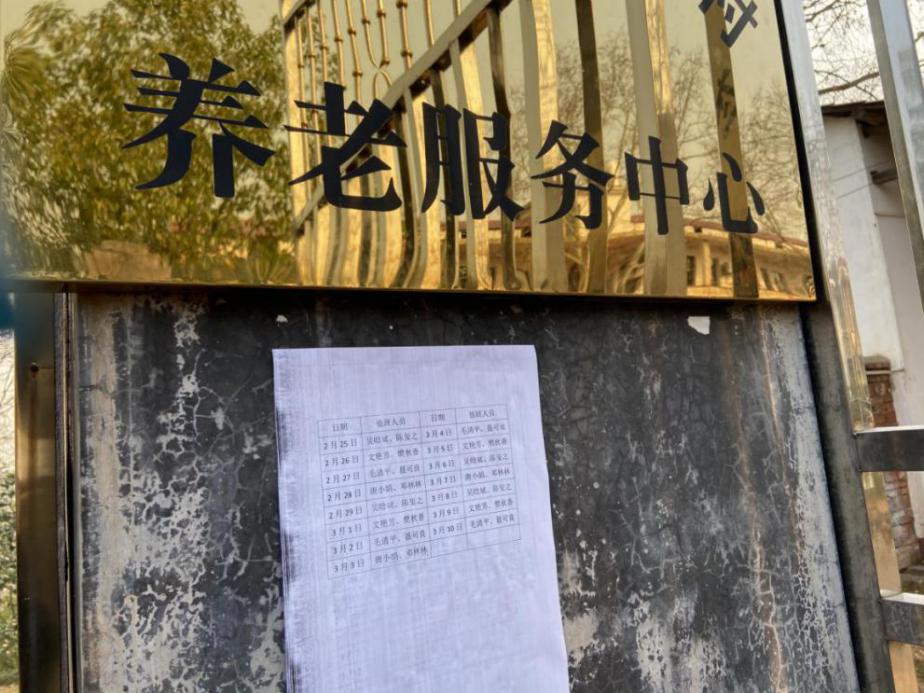 养老服务中心
日期 值班人员 日期 值班人员
2月25日 吴晗斌、陈玺之 3月4日 毛清平、聂可良
2月26日 文艳芳、樊秋香 3月5日 文艳芳、樊秋香
2月27日 毛清平、聂可良 3月6日 吴晗斌、陈玺之
2月28日 唐小娟、邓林林 3月7日 唐小娟、邓林林
2月29日 吴晗斌、陈玺之 3月8日 吴晗斌、陈玺之
3月1日 文艳芳、樊秋香 3月9日 文艳芳、樊秋香
3月2日 毛清平、聂可良 3月10日 毛清平、聂可良
3月3日 唐小娟、邓林林